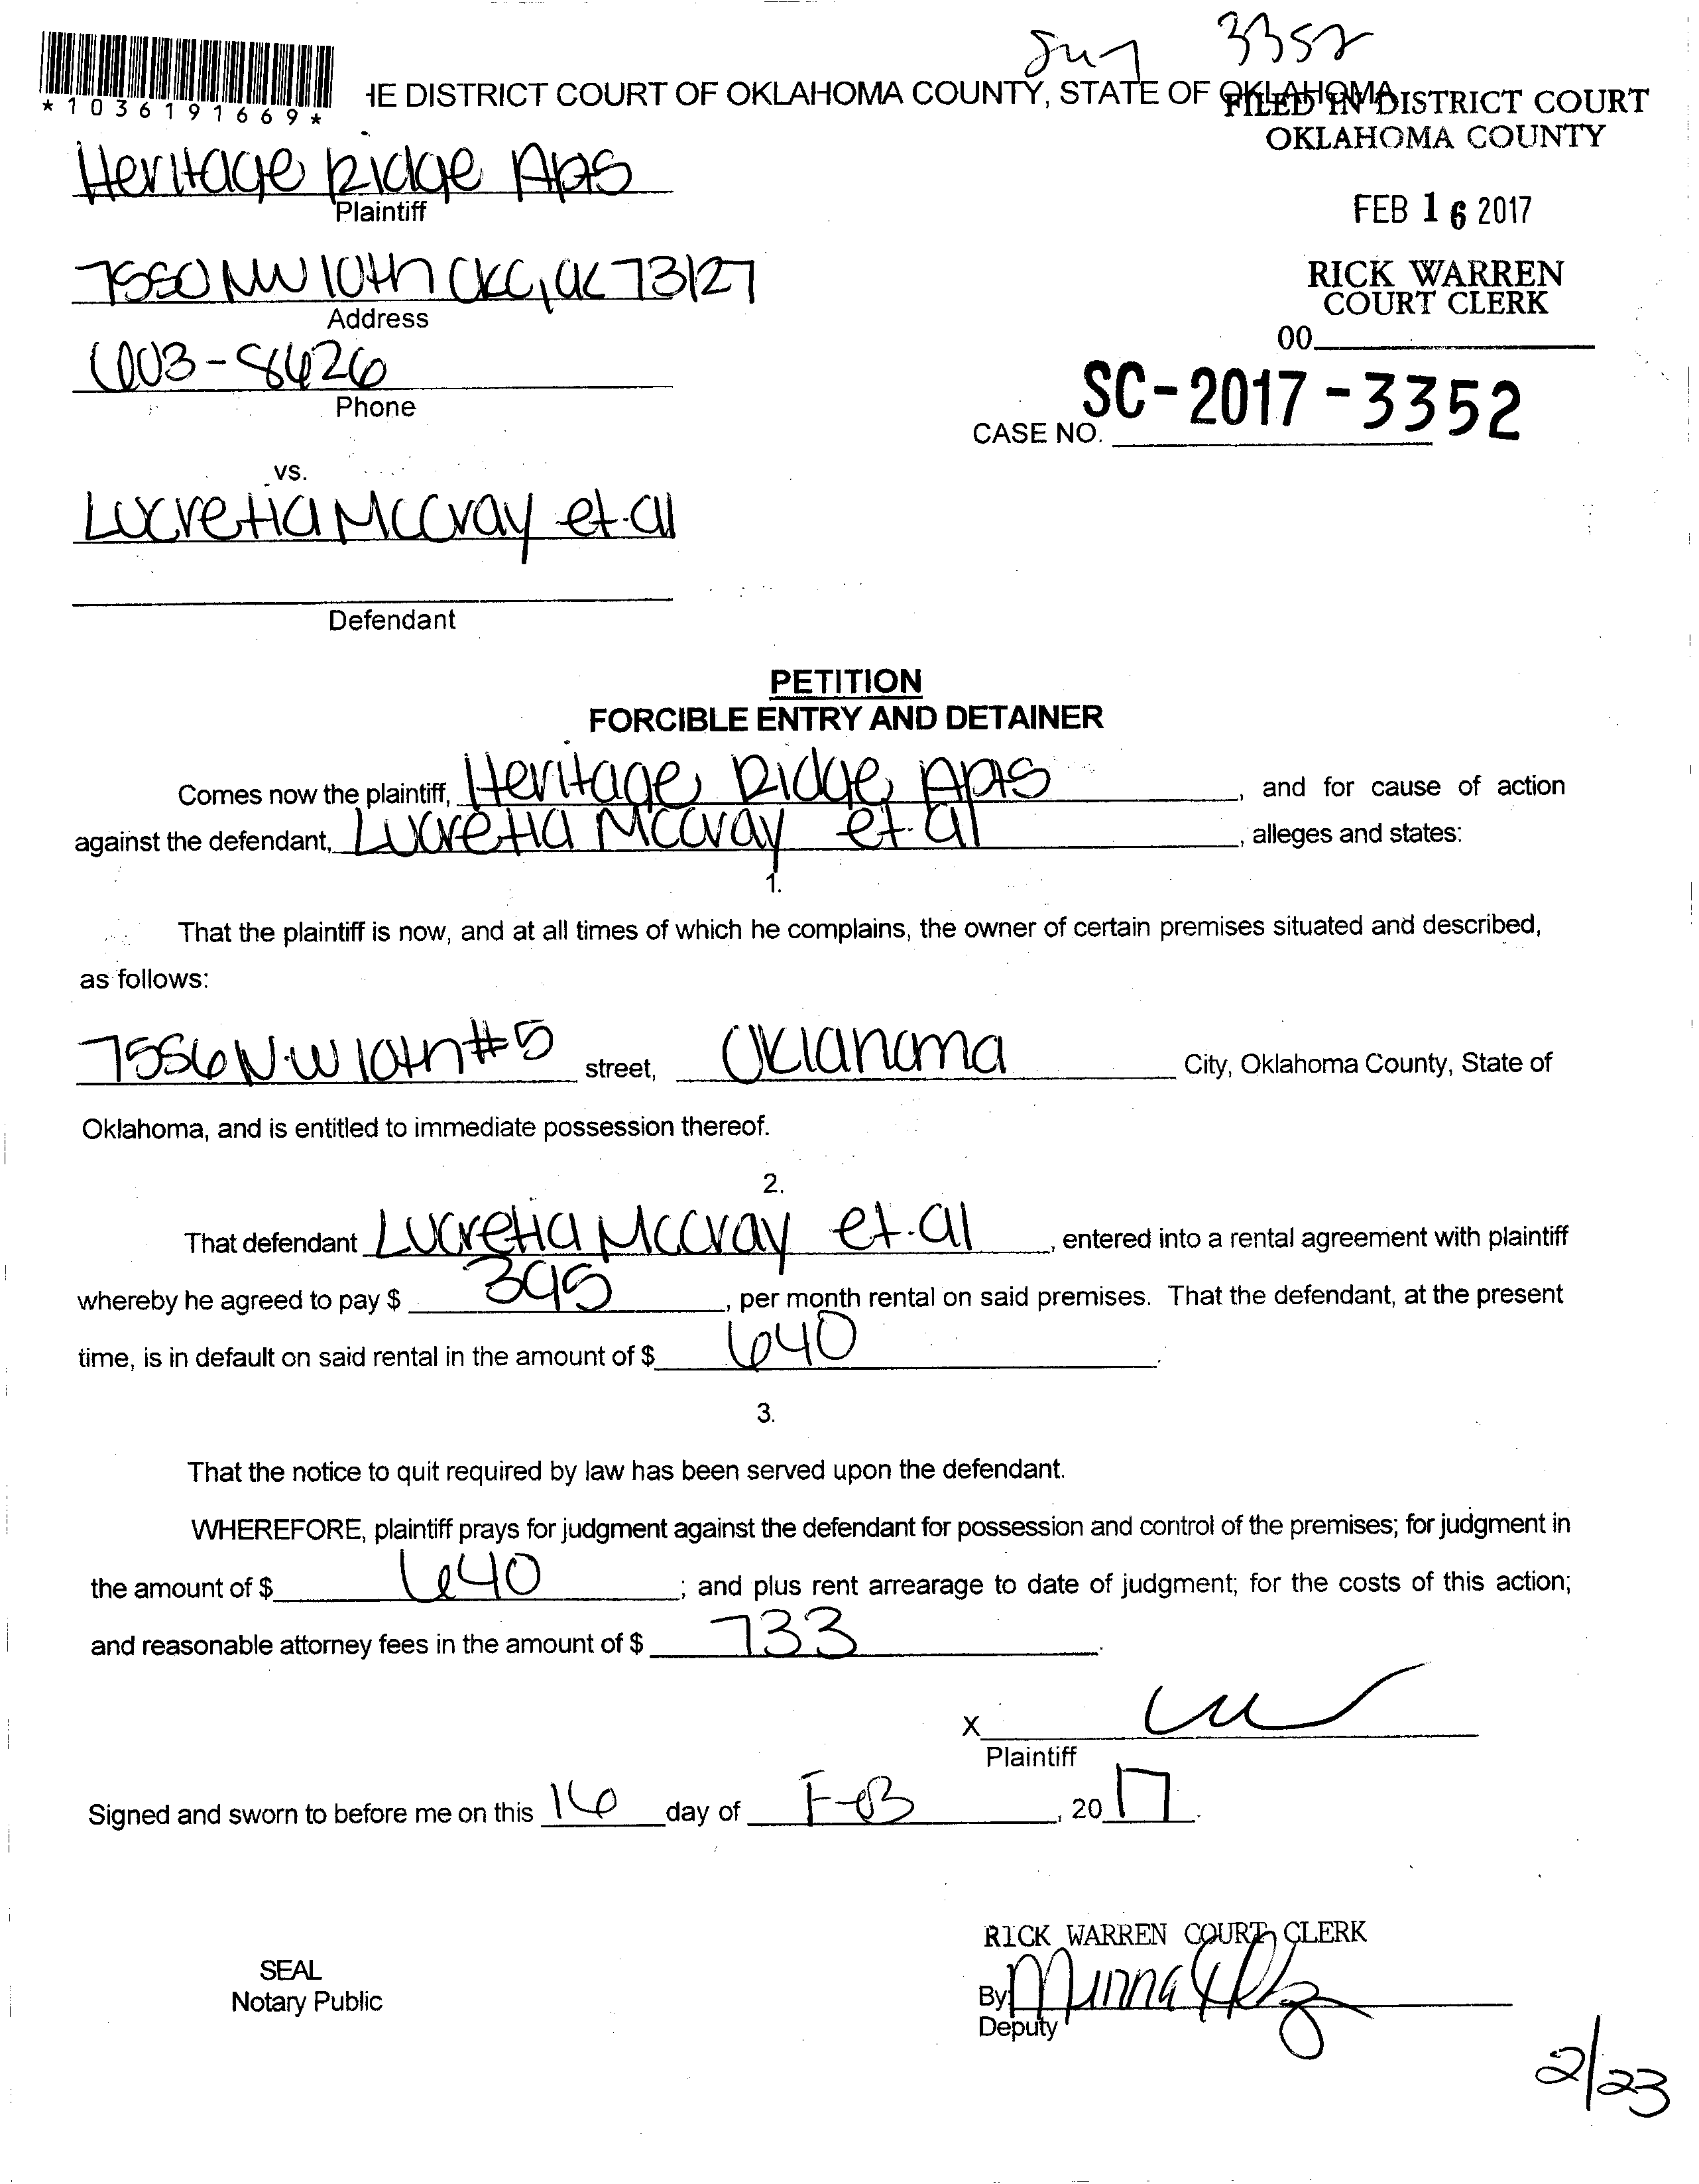 3352
*1036191669*
HE DISTRICT COURT OF OKLAHOMA COUNTY, STATE OF OKLAHOMA
FILED IN DISTRICT COURT
OKLAHOMA COUNTY
Heritage Ridge Apts
Plaintiff
FEB 16 2017
7550 NW 10th OKC, OK 73127
Address
RICK WARREN
COURT CLERK
00
603-8626
Phone
CASE NO. SC-2017-3352
vs.
Lucretia McCray et.al
Defendant
PETITION
FORCIBLE ENTRY AND DETAINER
Comes now the plaintiff, Heritage Ridge Apts, and for cause of action
against the defendant, Lucretia McCray et.al, alleges and states:
1.
That the plaintiff is now, and at all times of which he complains, the owner of certain premises situated and described,
as follows:
7556 N.W 10th #5 street, Oklahoma City, Oklahoma County, State of
Oklahoma, and is entitled to immediate possession thereof.
2.
That defendant Lucretia McCray et.al, entered into a rental agreement with plaintiff
whereby he agreed to pay $ 395, per month rental on said premises. That the defendant, at the present
time, is in default on said rental in the amount of $ 640.
3.
That the notice to quit required by law has been served upon the defendant.
WHEREFORE, plaintiff prays for judgment against the defendant for possession and control of the premises; for judgment in
the amount of $ 640; and plus rent arrearage to date of judgment; for the costs of this action;
and reasonable attorney fees in the amount of $ 733.
X
Plaintiff
Signed and sworn to before me on this 16 day of FEB, 2017.
RICK WARREN COURT CLERK
SEAL
Notary Public
By
Deputy
2/23